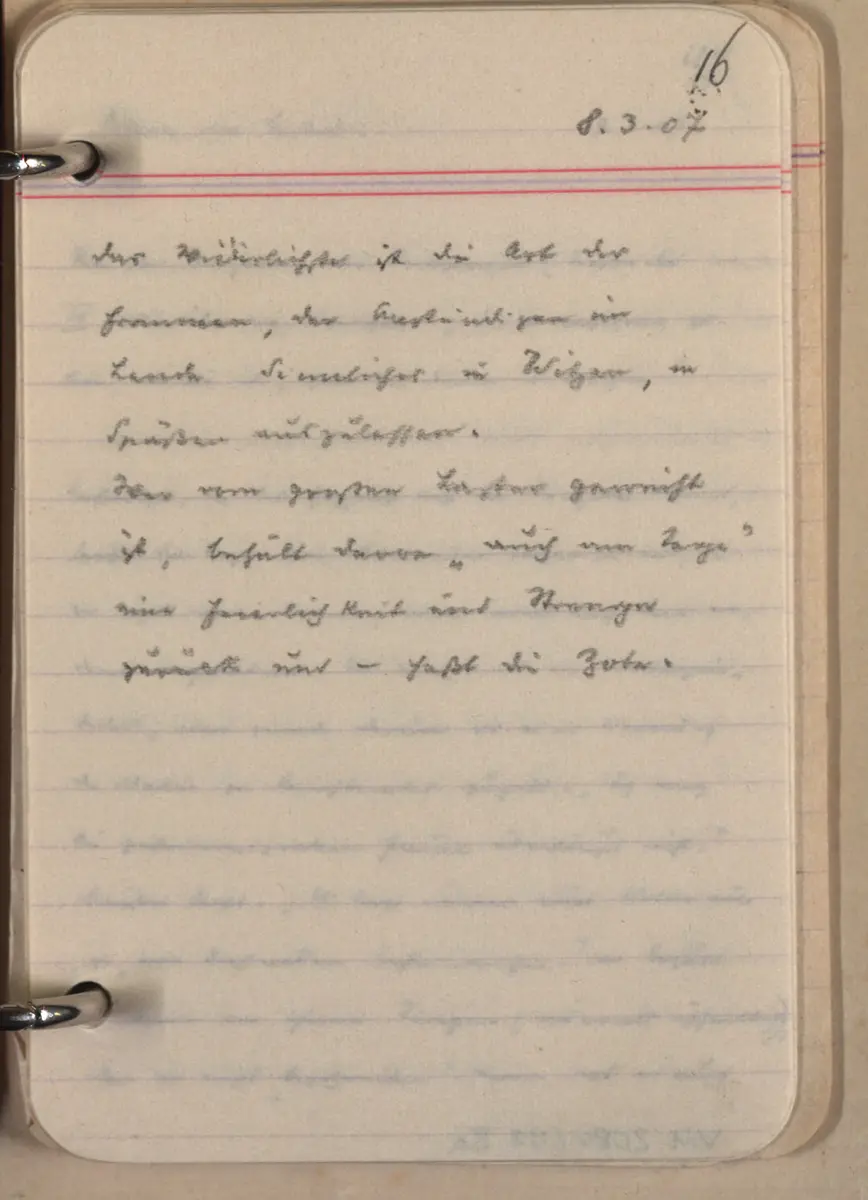 16
8.3.07
das Widerlichste ist die Art der
Frommen, der Anständigen im
Lande Sinnliches in Witzen, in
Späßen auszulassen.
Wer vom großen Laster geweiht
ist, behält davon „auch am Tage”
eine Feierlichkeit und Strenge
zurück und – haßt die Zote.